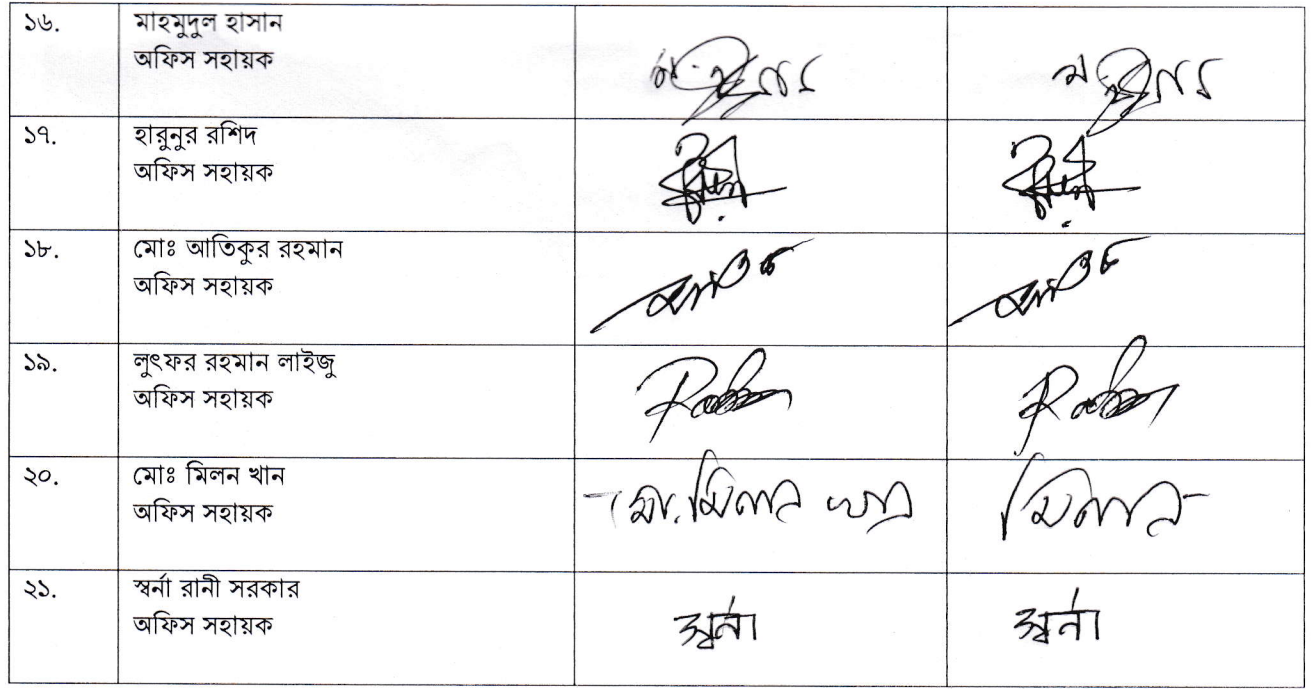 ১৬.
মাহমুদুল হাসান
অফিস সহায়ক
১৭.
হারুনুর রশিদ
অফিস সহায়ক
১৮.
মোঃ আতিকুর রহমান
অফিস সহায়ক
১৯.
লুৎফর রহমান লাইজু
অফিস সহায়ক
২০.
মোঃ মিলন খান
অফিস সহায়ক
মো. মিলন খান মিলন
২১.
স্বর্না রানী সরকার
অফিস সহায়ক
স্বর্না স্বর্না